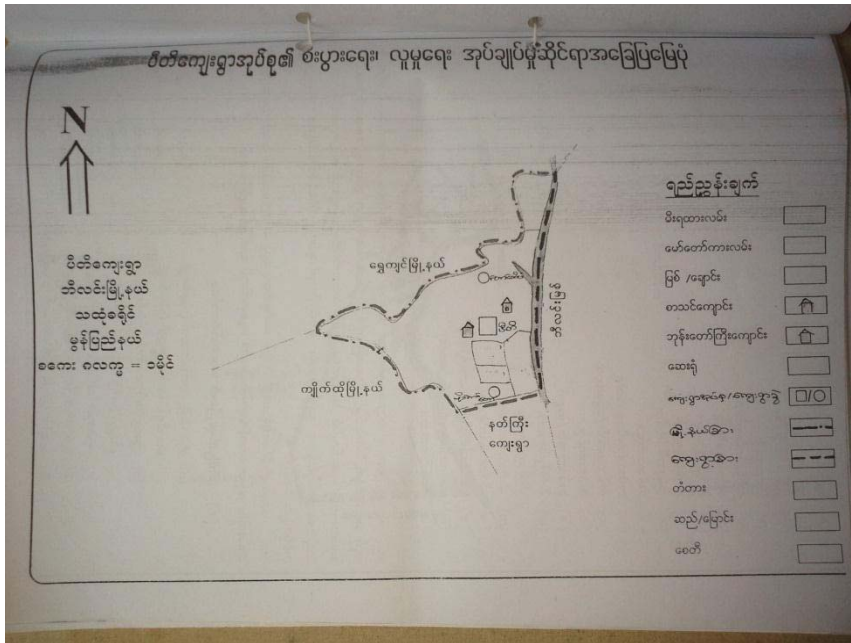 ပီတိကျေးရွာအုပ်စု၏ စီးပွားရေး၊ လူမှုရေး အုပ်ချုပ်မှုဆိုင်ရာအခြေပြမြေပုံ
N
ပီတိကျေးရွာ
ဘီလင်းမြို့နယ်
သထုံခရိုင်
မွန်ပြည်နယ်
စကေး ၈လက္မ = ၁မိုင်
ရွှေကျင်မြို့နယ်
ကျိုက်ထိုမြို့နယ်
ပီတိ
ဘီလင်းမြစ်
နတ်ကြီး
ကျေးရွာ
ရည်ညွှန်းချက်
မီးရထားလမ်း
မော်တော်ကားလမ်း
မြစ် /ချောင်း
စာသင်ကျောင်း
ဘုန်းတော်ကြီးကျောင်း
ဆေးရုံ
ကျေးရွာအုပ်စု/ကျေးရွာခွဲ
မြို့နယ်ခြား
ကျေးရွာခြား
တံတား
ဆည်/မြောင်း
စေတီ